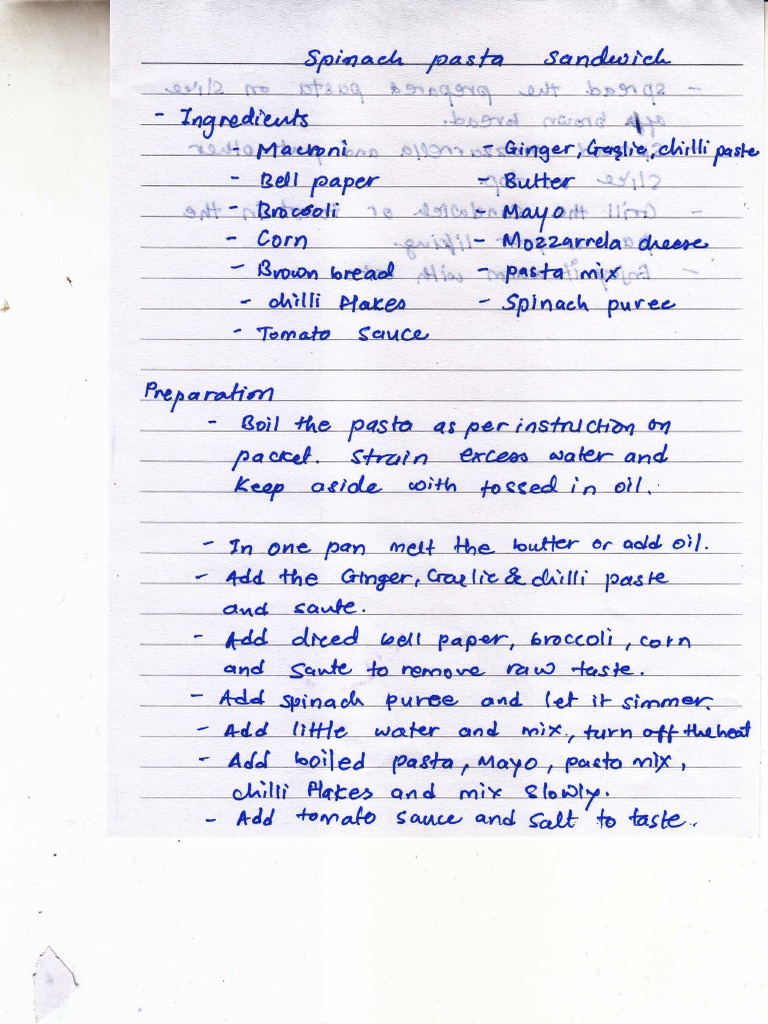 Spinach pasta sandwich
- Ingredients
- Macroni - Ginger, Garlic, chilli paste
- Bell paper - Butter
- Broccoli - Mayo
- Corn - Mozzarrela cheese
- Brown bread - pasta mix
- chilli flakes - Spinach puree
- Tomato sauce
Preparation
- Boil the pasta as per instruction on
packet. Strain excess water and
keep aside with tossed in oil.
- In one pan melt the butter or add oil.
- Add the Ginger, Garlic & chilli paste
and saute.
- Add diced bell paper, broccoli, corn
and saute to remove raw taste.
- Add spinach puree and let it simmer.
- Add little water and mix, turn off the heat
- Add boiled pasta, Mayo, pasta mix,
chilli flakes and mix slowly.
- Add tomato sauce and salt to taste.